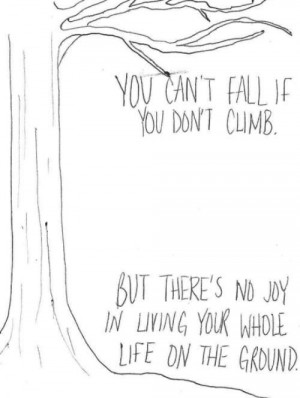 YOU CAN'T FALL IF
YOU DON'T CLIMB.
BUT THERE'S NO JOY
IN LIVING YOUR WHOLE
LIFE ON THE GROUND.